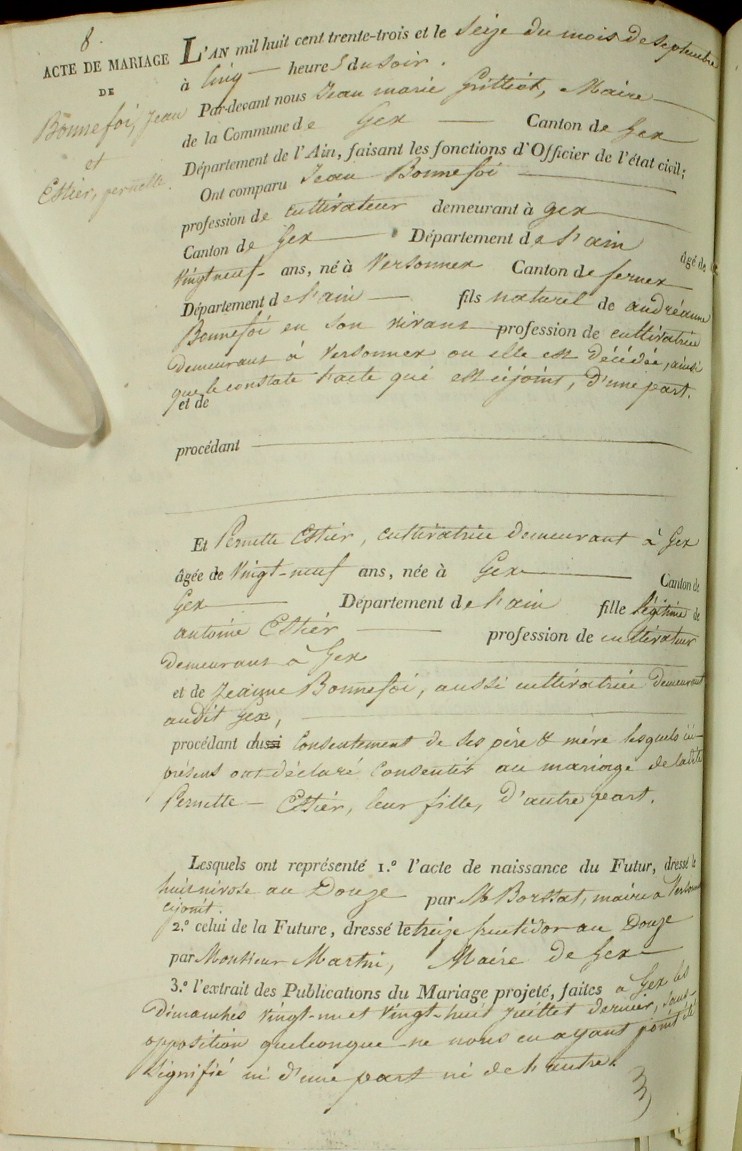 8.
ACTE DE MARIAGE
DE
Bonnefoi, Jean
et
Estier, pernette.
L'AN mil huit cent trente-trois et le Seize du mois de Septembre
à Cinq heures du Soir.
Par-devant nous Jean marie Maire
de la Commune de Gex Canton de Gex
Département de l'Ain, faisant les fonctions d'Officier de l'état civil;
Ont comparu Jean Bonnefoi
profession de cultivateur demeurant à gex
Canton de Gex Département de l'ain âgé de
vingt neuf ans, né à Versonnex Canton de fernex
Département de l'ain fils naturel de andréanne
Bonnefoi en son vivant profession de cultivatrice
demeurant à Versonnex ou elle est décédée, ainsi
que le constate l'acte qui est cijoint, d'une part.
et de
procédant
Et Pernette Estier, cultivatrice demeurant à Gex
âgée de Vingt-neuf ans, née à Gex Canton de
Gex Département de l'ain fille légitime de
antoine Estier profession de cultivateur
demeurant à Gex
et de Jeanne Bonnefoi, aussi cultivatrice demeurant
audit Gex,
procédant du Consentement de ses père & mère lesquels ici
présens ont déclaré Consentir au mariage de ladite
Pernette Estier, leur fille, d'autre part.
Lesquels ont représenté 1.º l'acte de naissance du Futur, dressé le
huit nivose an Douze par Mr Borssat, maire à Versonnex
cijoint.
2.º celui de la Future, dressé le treize fructidor an Douze
par Monsieur Martin, Maire de Gex
3.º l'extrait des Publications du Mariage projeté, faites à Gex les
Dimanches vingt-un et vingt-huit juillet dernier, sans
opposition quelconque ne nous en ayant point été
Signifié ni d'une part ni de l'autre.